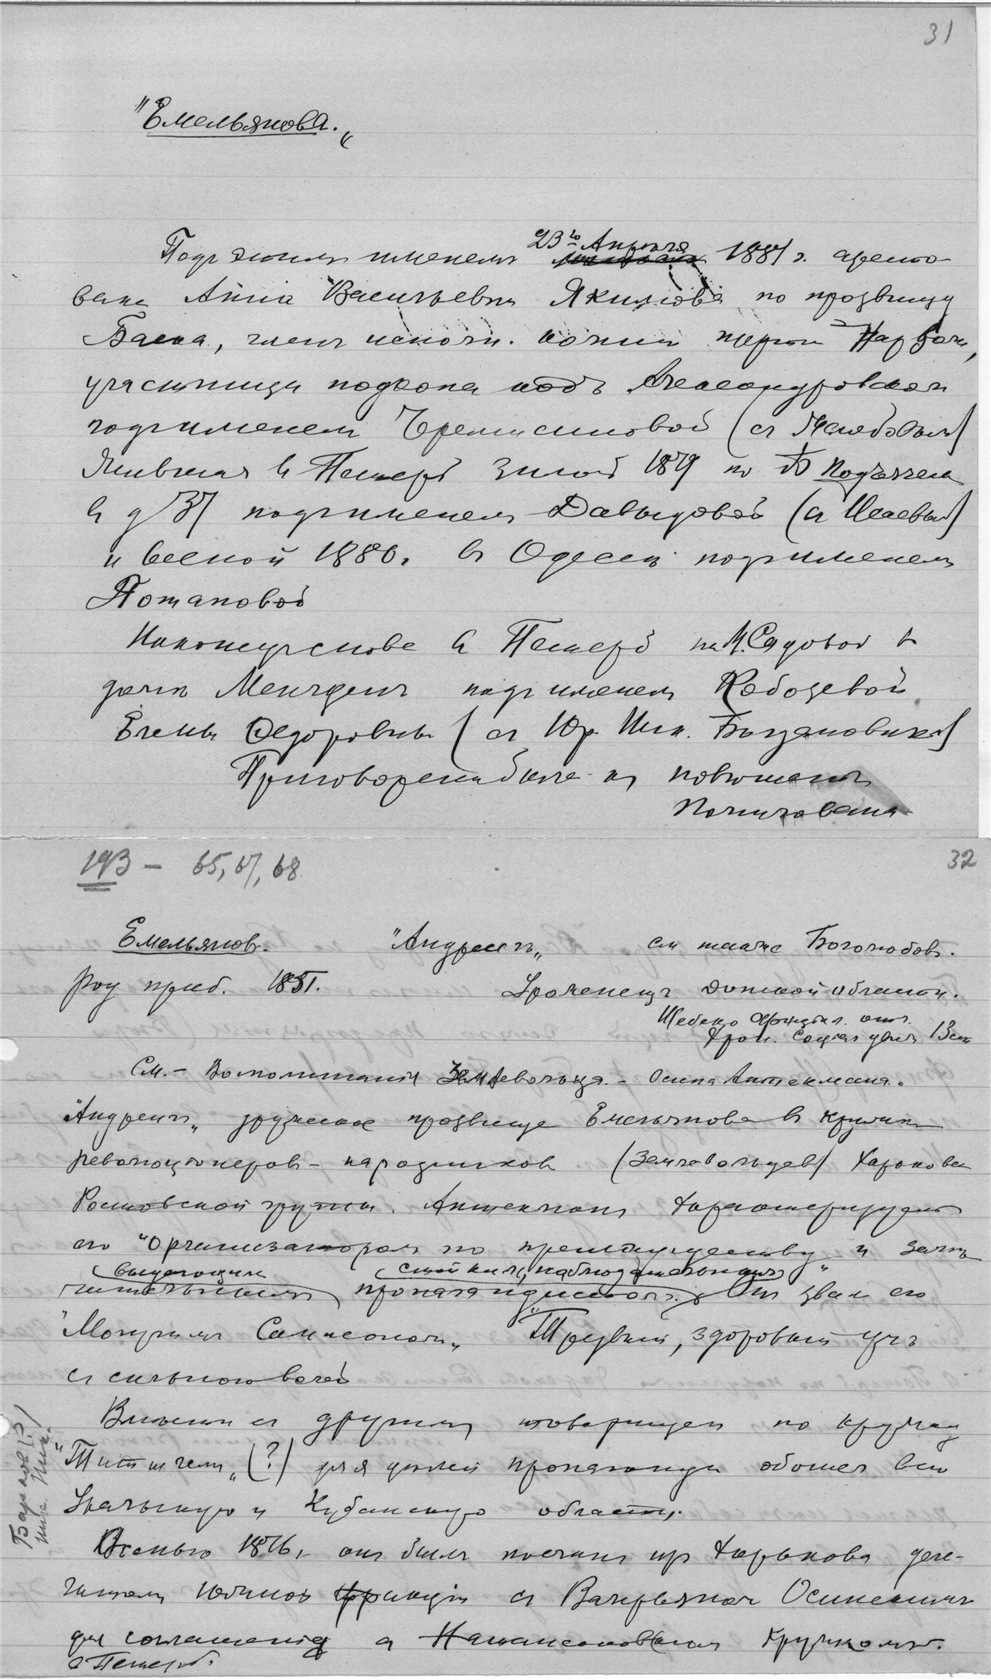 31
"Емельянова."
Подъ этимъ именемъ 23го Апреля 1881 г. аресто-
вана Анна Васильевна Якимова по прозвищу
Баска, членъ исполн. партии Нар Воли,
участница подкопа подъ Александровском
под именем Черемисиновой (съ Желябовым)
Жившая в Петерб зимой 1879 по Б Подъяческ
в д 37 под именем Давыдовой (съ Исаевым)
и весной 1880 г. в Одессе под именем
Потаповой
Наконец снова в Петерб на М. Садовой в
доме Менгден под именем Кобозевой
Елены Федоровны (съ Юр. Ник. Богдановичем)
Приговорена была къ повешен
Помилована
193 – 65, 67, 68
32
Емельяновъ. "Андреичъ" см также Боголюбовъ.
Род прибл. 1851. Уроженецъ Донской области.
Щебено
Хрон. Социал движ 13
См. – Воспоминания Землевольца – Осипа Аптекмана.
"Андреичъ" дружеское прозвище Емельянова в кружке
революционеров – народников (Землевольцев) Харьков
Ростовской группы. Аптекманъ характеризует
его "Организатором по преимуществу" и
выдающимся
пропагандистом. Он звал его
"Могучим Самсоном" "Трезвый, здоровый ум
съ сильной волей
Вместе съ другим товарищем по кружку
"Титычем" (?) для целей пропаганды обошел всю
Уральскую и Кубанскую области.
Баранов(?)
Осенью 1876 г он был послан из Харькова деле-
гатом южной фракции съ Валерьяном Осинским
для соглашения с Натансоновским Кружком
в Петерб.